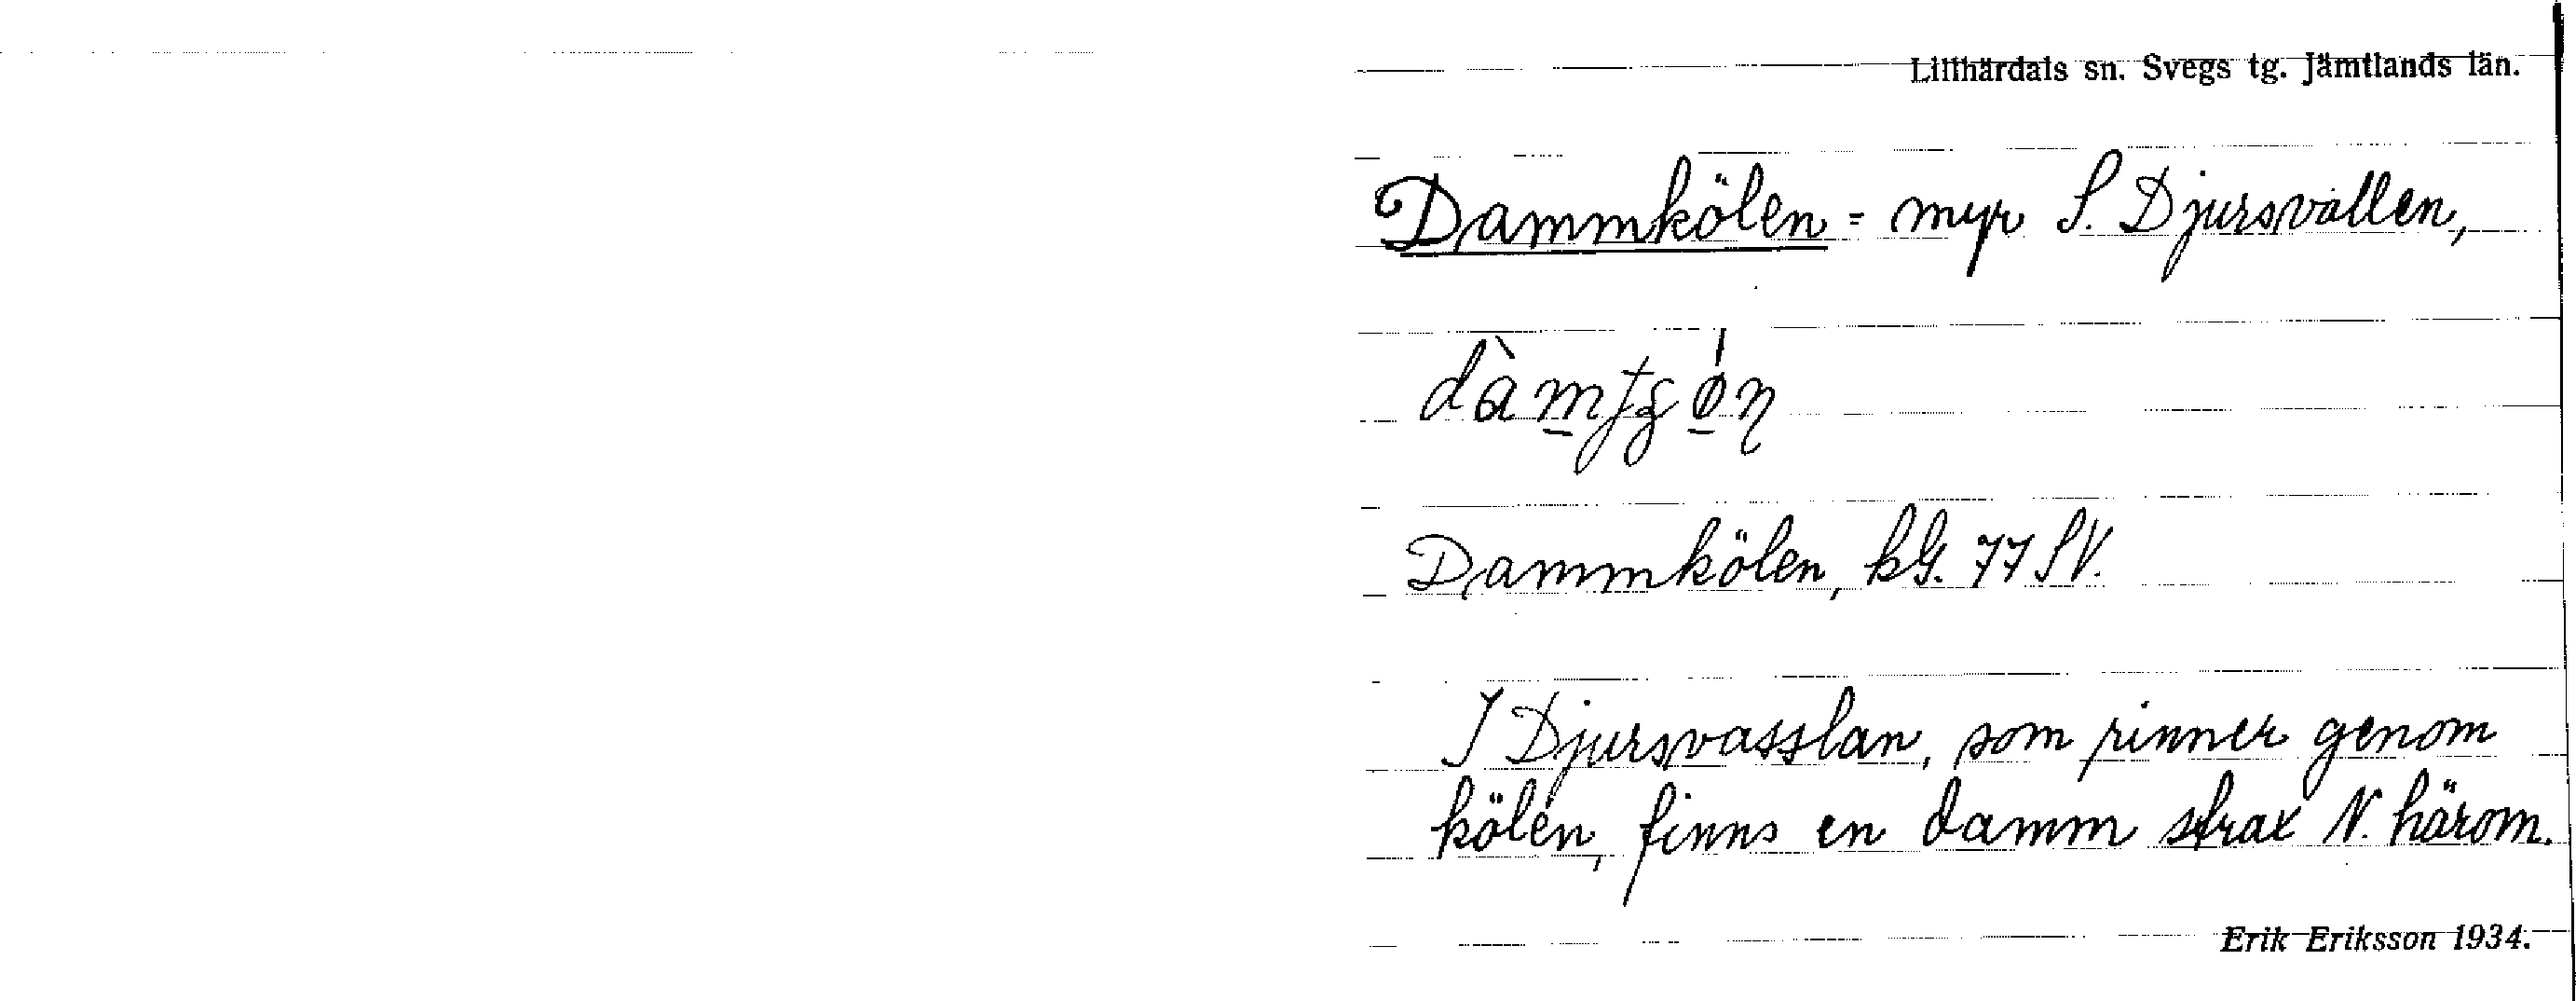 Lillhärdals sn. Svegs tg. Jämtlands län.
Dammkölen = myr S. Djursvallen,
Dammkölen, kG. 77 SV.
I Djursvasslan, som rinner genom
kölen, finns en damm strax N. härom.
Erik Eriksson 1934.